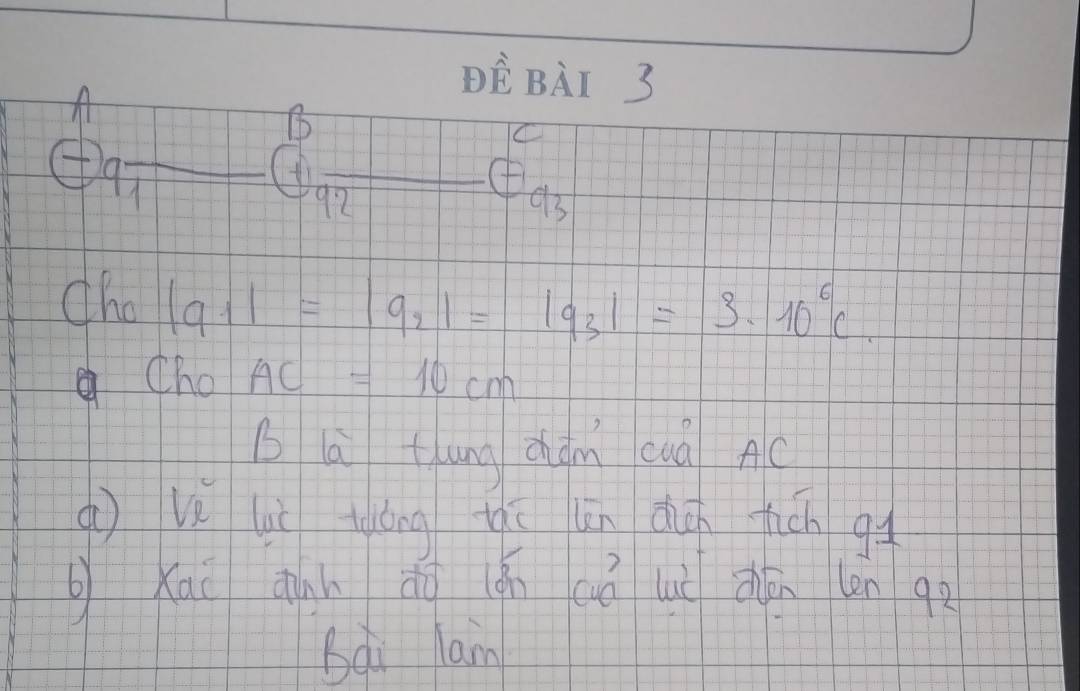 ĐỀ BÀI 3
A B C
⊖ q1 ⊕ q2 ⊖ q3
Cho |q1| = |q2| = |q3| = 3. 10⁶C.
Cho AC = 10 cm
B là trung điểm của AC
a) Vẽ lực tương tác lên điện tích q1
b) Xác định độ lớn của lực điện lên q2
Bài làm